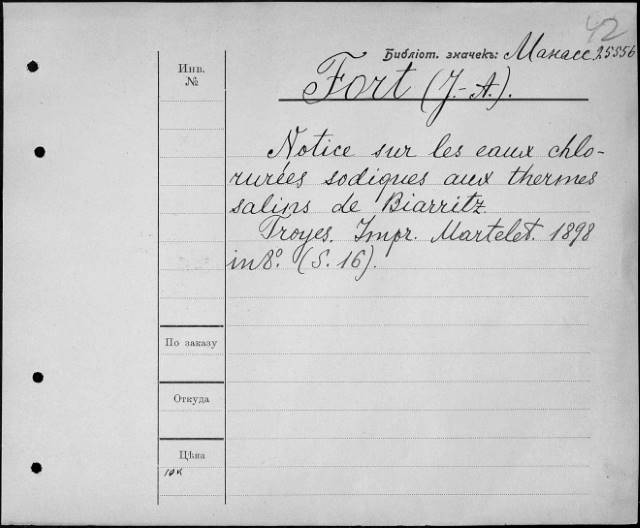 42
Библіот. значекъ: Манасс. 25556
Инв.
№
Fort (J.-A.).
Notice sur les eaux chlo-
rurées sodiques aux thermes
salins de Biarritz.
Troyes. Impr. Martelet. 1898
in 8º. (S. 16).
По заказу
Откуда
Цѣна
10к